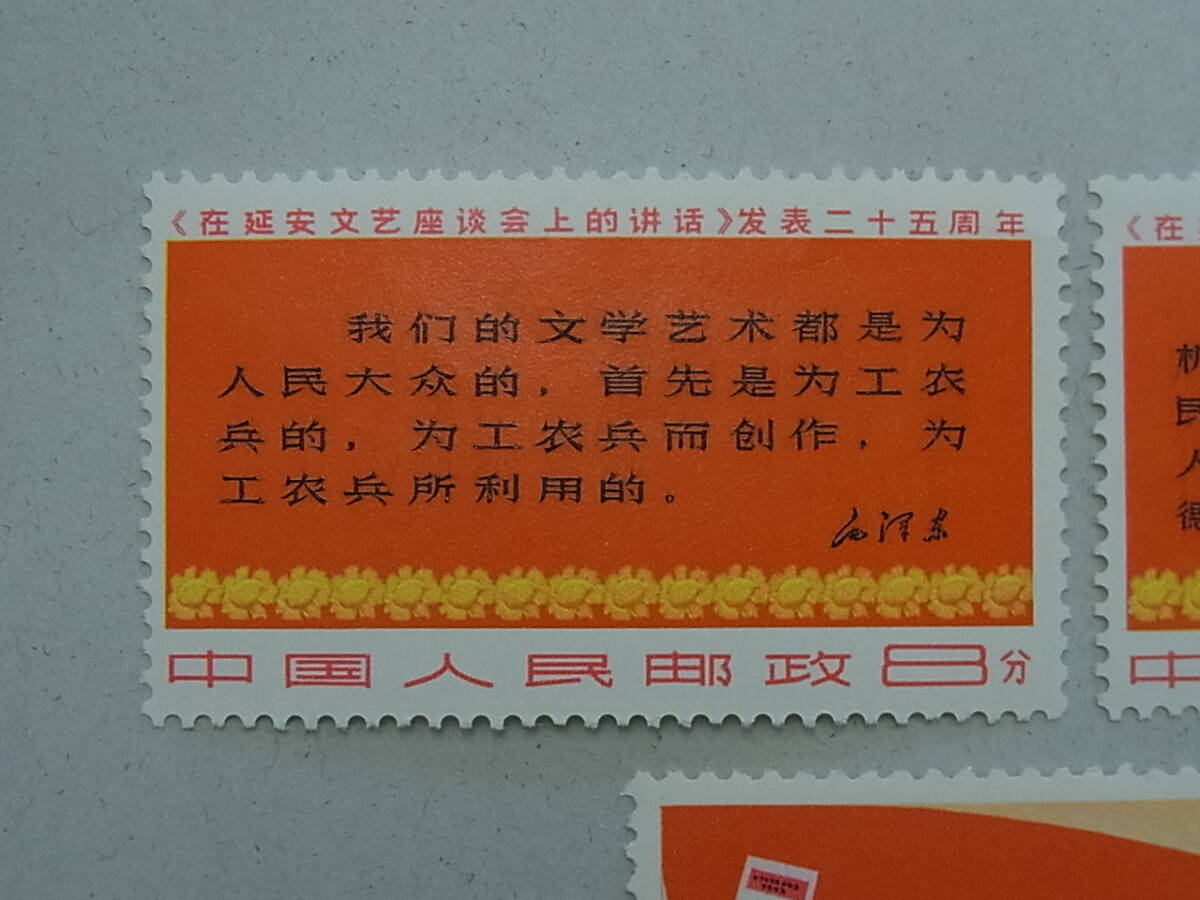 《在延安文艺座谈会上的讲话》发表二十五周年
我们的文学艺术都是为
人民大众的，首先是为工农
兵的，为工农兵而创作，为
工农兵所利用的。
毛泽东
中国人民邮政8分
《在
民
人
德
中